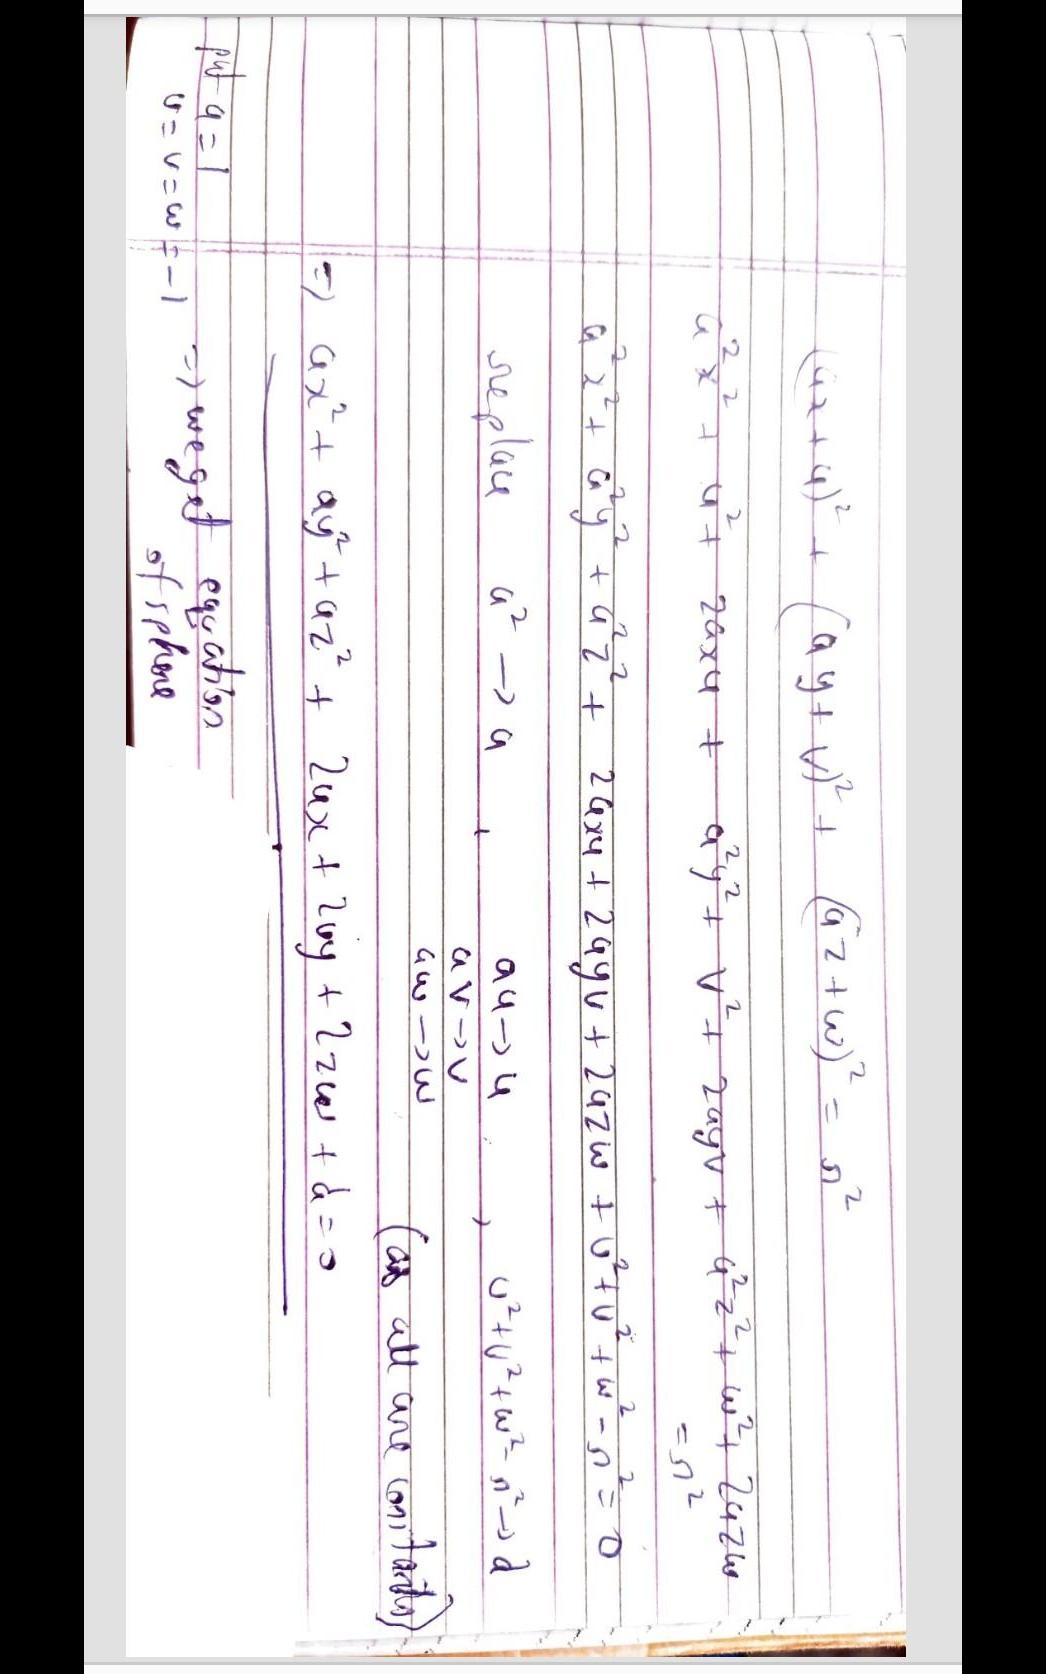 (ax+u)² + (ay+v)² + (az+w)² = r²
a²x² + u² + 2axu + a²y² + v² + 2ayv + a²z² + w² + 2azw
= r²
a²x² + a²y² + a²z² + 2axu + 2ayv + 2azw + u²+v²+w²-r² = 0
replace a² → a , au→u , u²+v²+w²-r²→d
av→v
aw→w
(as all are constants)
=> ax² + ay² + az² + 2ux + 2vy + 2zw + d = 0
put a = 1
u = v = w = -1 => we get equation
of sphere